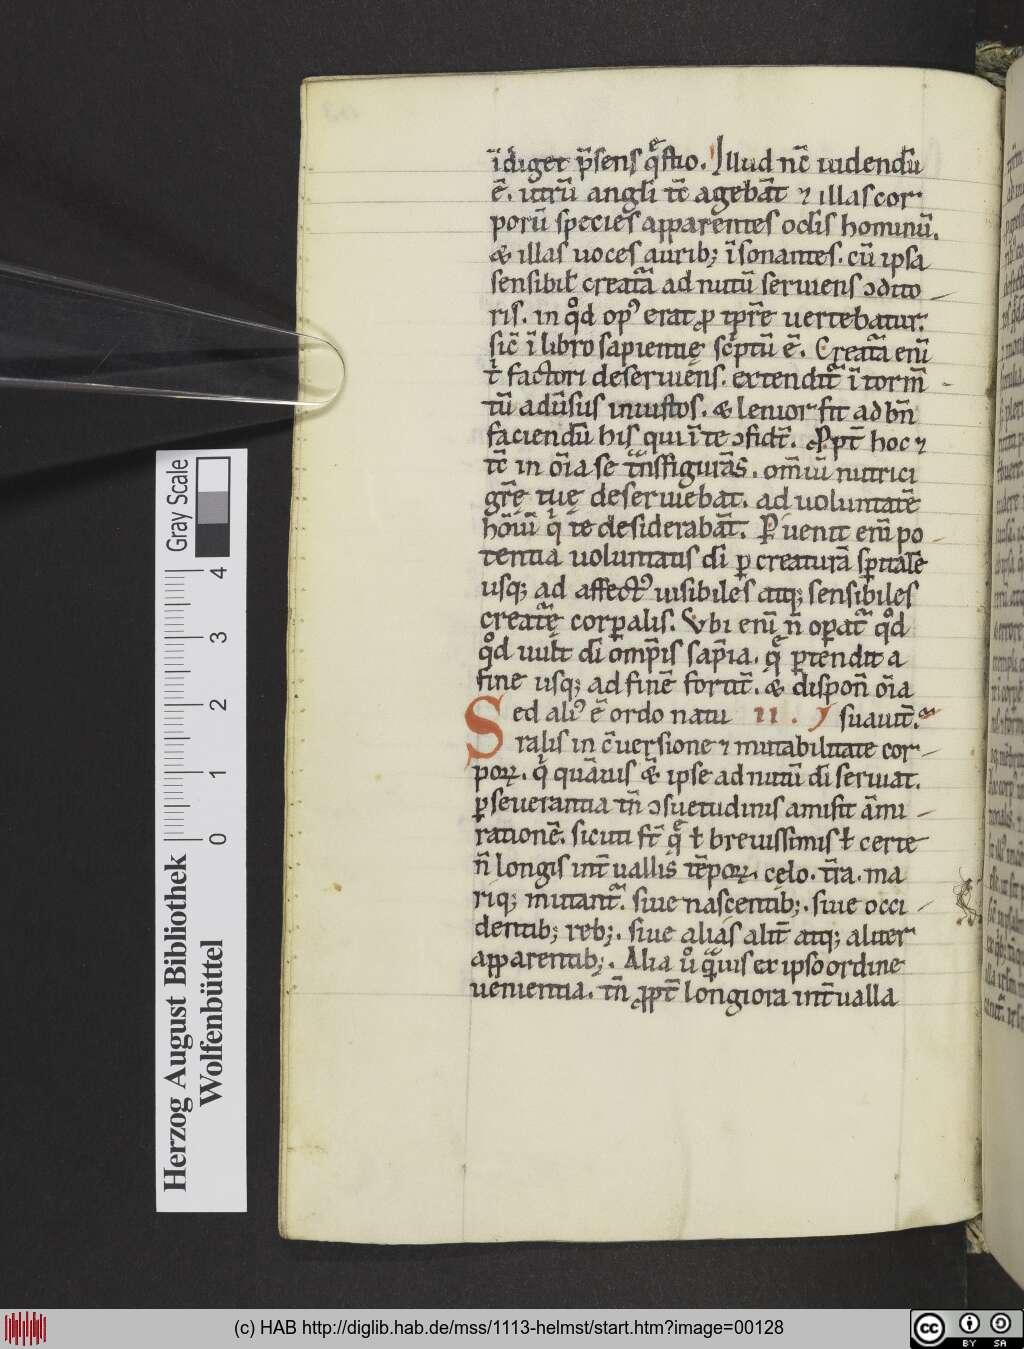 īdiget p̄sens q̄stio. Illud nc̄ uidendū
ē. utrū angli tc̄ agebāt ⁊ illas cor
porū species apparentes oclis hominū.
& illas uoces aurib; īsonantes. cū ipsa
sensibil creatā ad nutū seruiens ꝯdito
ris. in qͦd opꝰ erat ꝓ tp̄re uertebatur.
sic̄ ī libro sapientie sc̄ptū ē. Creatā enī
t factori deseruiens. extendit ī torm̄
tū aduersus iniustos. & lenior fit ad bn̄
faciendū his qui ī te ꝯfidt̄. Ppt̄ hoc ⁊
tc̄ in oīa se tn̄sfigurās. omīū nutrici
gr̄e tuę deseruiebat. ad uoluntatē
hoīū q te desiderabāt. Puenit enī po
tentia uoluntatis di ꝑ creaturā spūalē
usq; ad affectꝰ uisibiles atq; sensibiles
creatę corꝑalis. Vbi enī n̄ operat qͦd
qͦd uult di omp̄is sap̄ia. q ꝑtendit a
fine usq; ad finē fortit̄. & dispon̄ oīa
Sed aliꝰ ē ordo natu II. suauit̄.
ralis in c̄uersione ⁊ mutabilitate cor
poꝝ. q quāuis & ipse ad nutū di seruiat.
ꝑseuerantia tn̄ ꝯsuetudinis amisit āmi
rationē. sicuti st̄ q ł breuissimis ł certe
n̄ longis int̄uallis tēpoꝝ. celo. tr̄a. ma
riq; mutant̄. siue nascentib;. siue occi
dentib; reb;. siue alias alit̄ atq; aliter
apparentib;. Alia u q̄uis ex ipso ordine
uenientia. tn̄ ꝓpt̄ longiora int̄ualla
Herzog August Bibliothek
Wolfenbüttel
Gray Scale
0 1 2 3 4
(c) HAB http://diglib.hab.de/mss/1113-helmst/start.htm?image=00128
cc BY SA